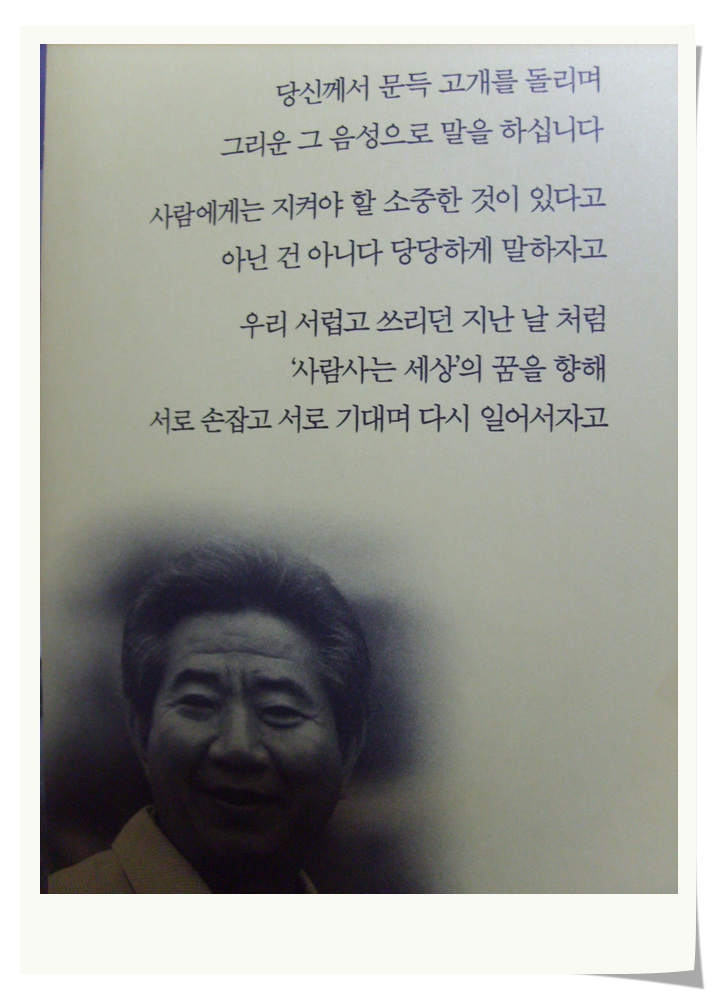 당신께서 문득 고개를 돌리며
그리운 그 음성으로 말을 하십니다
사람에게는 지켜야 할 소중한 것이 있다고
아닌 건 아니다 당당하게 말하자고
우리 서럽고 쓰리던 지난 날 처럼
‘사람사는 세상’의 꿈을 향해
서로 손잡고 서로 기대며 다시 일어서자고